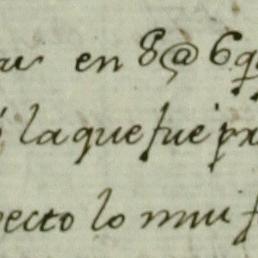 en 8@ 6q
la que fue px
pecto lo mui f